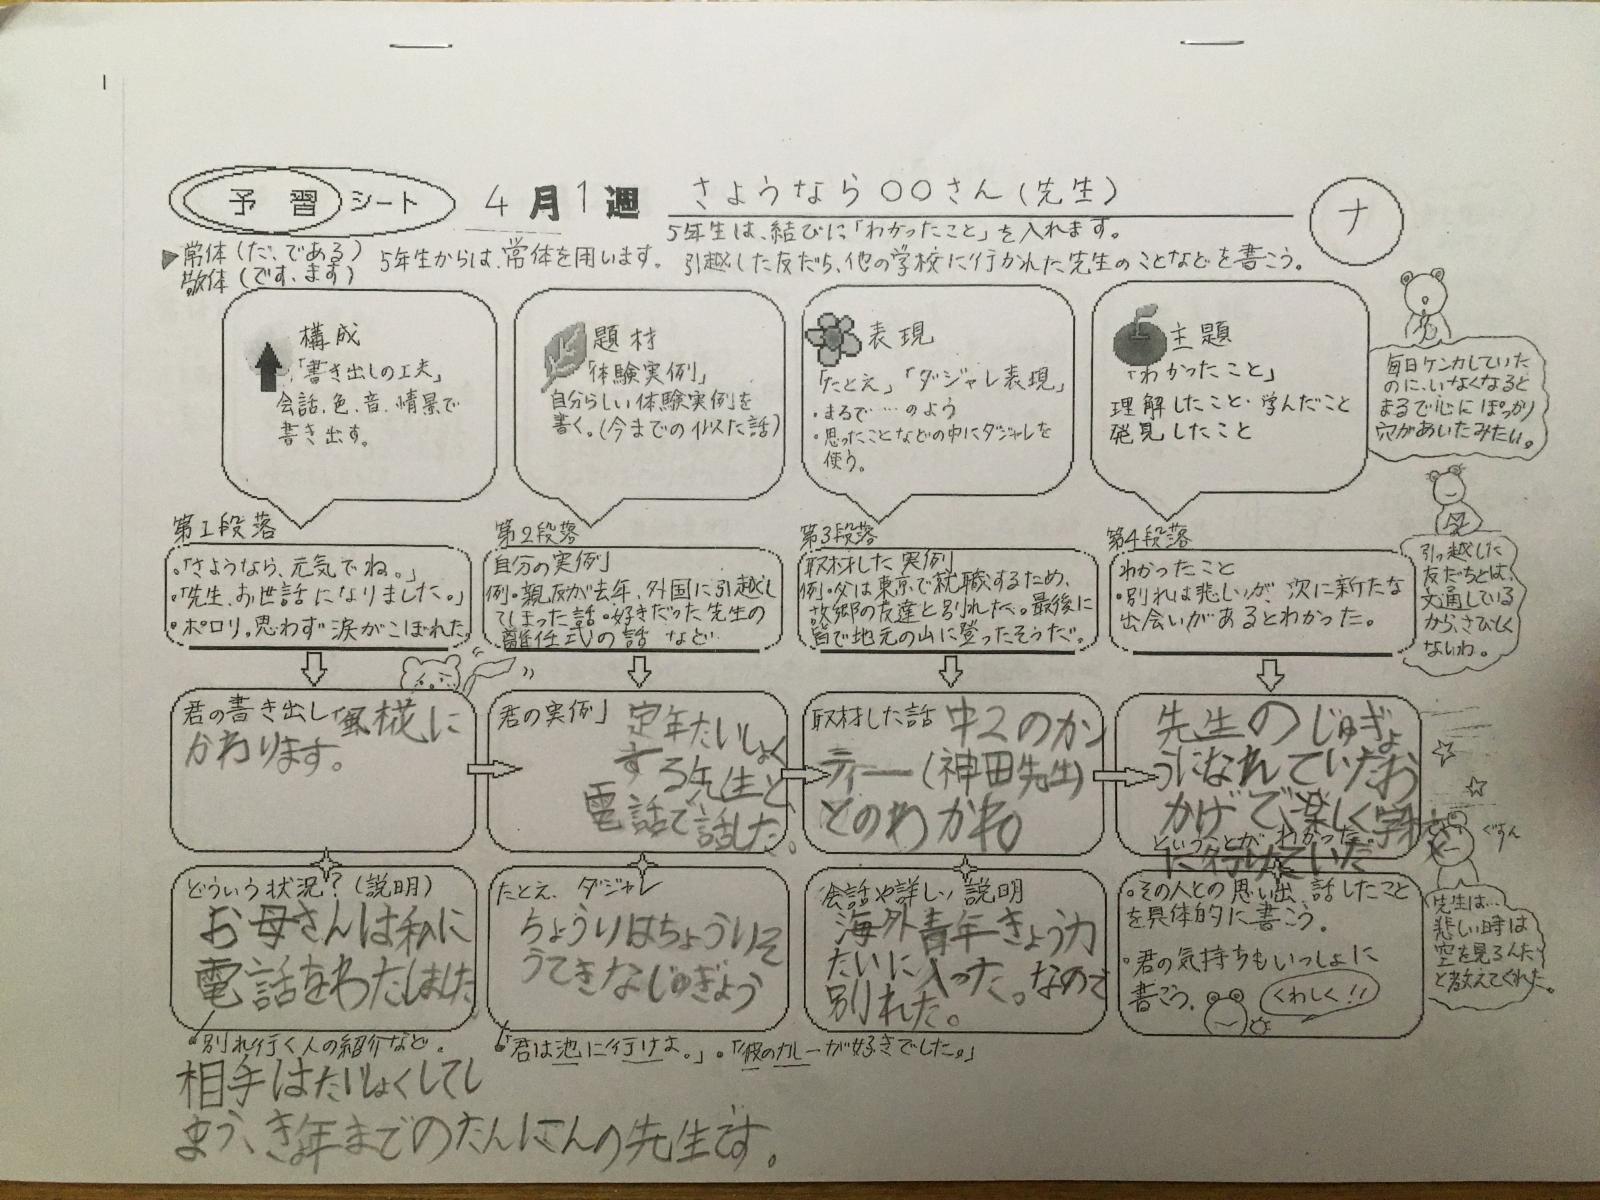 予習シート 4月1週 さようなら○○さん(先生)
ナ
5年生は、結びに「わかったこと」を入れます。
▶常体(だ、である)
敬体(です、ます)
5年生からは、常体を用います。 引越した友だち、他の学校に行かれた先生のことなどを書こう。
構成
「書き出しの工夫」
会話、色、音、情景で
書き出す。
題材
「体験実例」
自分らしい体験実例を
書く。(今までの似た話)
表現
「たとえ」「ダジャレ表現」
・まるで…のよう
・思ったことなどの中にダジャレを
使う。
主題
「わかったこと」
理解したこと・学んだこと
発見したこと
毎日ケンカしていた
のに、いなくなると
まるで心にぽっかり
穴があいたみたい。
第1段落
・「さようなら、元気でね。」
・「先生、お世話になりました。」
・ポロリ。思わず涙がこぼれた
第2段落
自分の実例」
例・親友が去年、外国に引越し
てしまった話・好きだった先生の
離任式の話 など
第3段落
取材した実例」
例・父は東京で就職するため、
故郷の友達と別れた。最後に
皆で地元の山に登ったそうだ。
第4段落
わかったこと
・別れは悲しいが、次に新たな
出会いがあるとわかった。
引っ越した
友だちとは、
文通している
から、さびしく
ないわ。
君の書き出し
に
かわります。
君の実例」
定年たいしょく
する先生と
電話で話した。
取材した話
中2のカン
ティー(神田先生)
とのわかれ
先生のじゅぎょ
うになれていたお
かげで、楽しく学校
に行けていた
ということがわかった
ぐすん
どういう状況?(説明)
お母さんは私に
電話をわたしました
たとえ、ダジャレ
ちょうりはちょうりそ
うてきなじゅぎょう
会話や詳しい説明
海外青年きょう力
たいに入った。なので
別れた。
・その人との思い出、話したこと
を具体的に書こう。
・君の気持ちもいっしょに
書こう。
くわしく!!
先生は…
悲しい時は
空を見るんだ
と教えてくれた。
・別れ行く人の紹介など。
・「君は池に行けよ。」・「彼のカレーが好きでした。」
相手はたいしょくしてし
まう、きょ年までのたんにんの先生です。